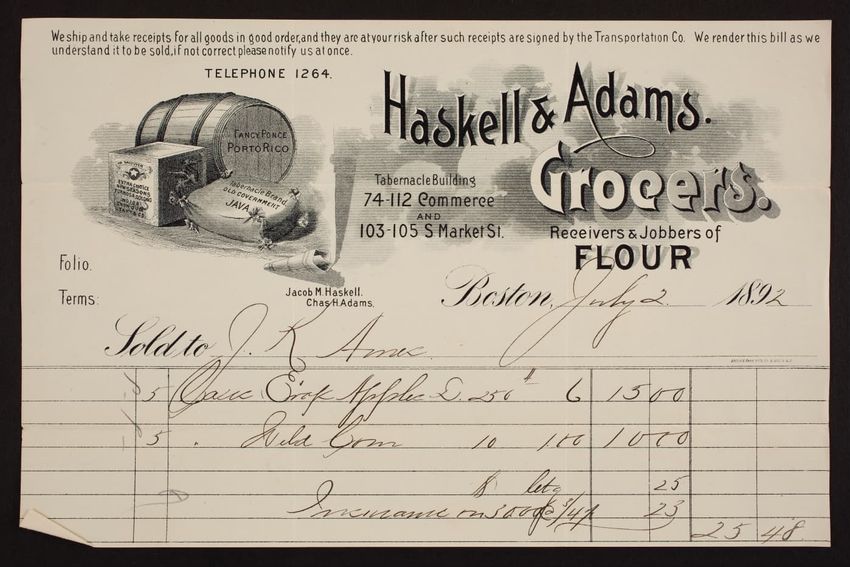 We ship and take receipts for all goods in good order, and they are at your risk after such receipts are signed by the Transportation Co. We render this bill as we
understand it to be sold, if not correct please notify us at once.
TELEPHONE 1264.
Haskell & Adams.
Grocers.
FANCY PONCE
PORTO RICO
EXTRA CHOICE
NEW SEASONS
Tabernacle Brand
OLD GOVERNMENT
JAVA
Tabernacle Building
74-112 Commerce
AND
103-105 S Market St.
Receivers & Jobbers of
FLOUR
Folio.
Terms:
Jacob M. Haskell.
Chas H. Adams.
Boston, July 2 1892
Sold to J. K.
5 Evap Apples 250# 6 15 00
5 " Corn 10 1.00 10 00
25
Insurance on 23
25 48